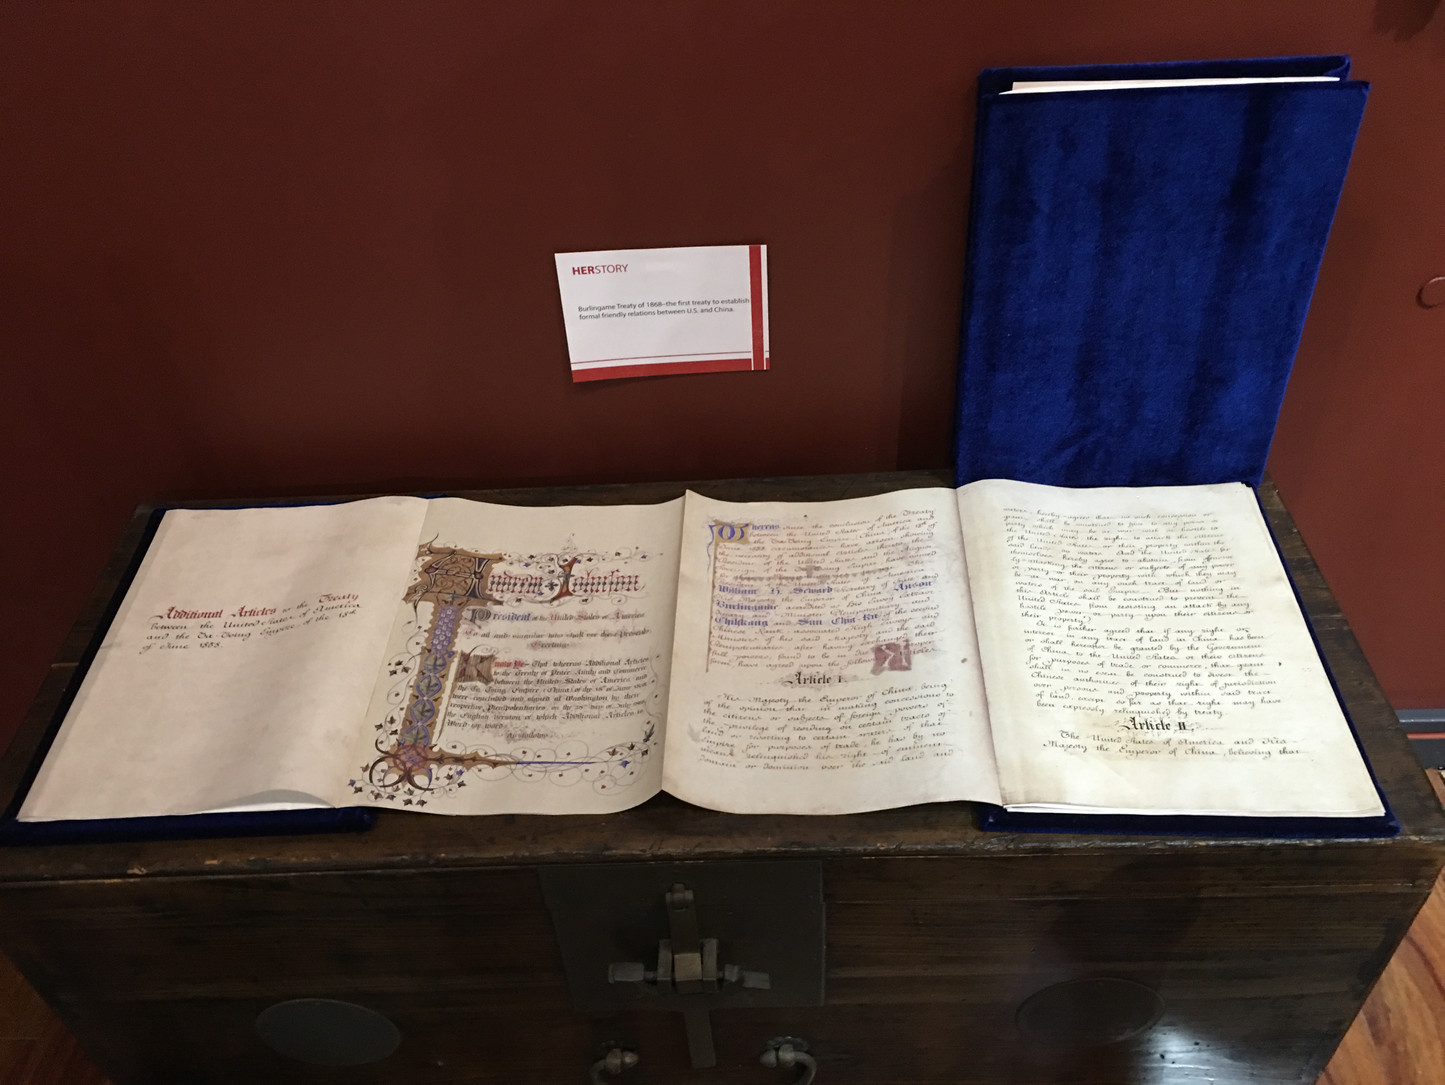 HERSTORY
Burlingame Treaty of 1868–the first treaty to establish
formal friendly relations between U.S. and China.
Additional Articles to the Treaty
between the United States of America
and the Ta-Tsing Empire of the 18th
of June 1858.
Andrew Johnson
President of the United States of America
To all and singular who shall see these presents
Greeting
Know Ye, That whereas Additional Articles
to the Treaty of Peace Amity and Commerce
between the United States of America and
the Ta Tsing Empire (China) of the 18th of June
were concluded and signed at Washington by their
respective Plenipotentiaries on the day of July
the English version of which Additional Articles is
Word for word
as follows
Whereas since the conclusion of the Treaty
between the United States of America and
the Ta-Tsing Empire (China) of the 18th of
June 1858 circumstances have arisen showing
the necessity of additional Articles thereto, the
President of the United States and the August
Sovereign of the Ta-Tsing Empire have named
the United States of America
William H. Seward Secretary of State and
His Majesty the Emperor of China Anson
Burlingame accredited as His Envoy
and Minister Plenipotentiary and
Chihkang and Sun Chia Ku of the second
Chinese Rank associated High Envoys and
Ministers of his said Majesty and the said
Plenipotentiaries after having exchanged their
full powers, found to be in due
form have agreed upon the following Articles
Article I.
His Majesty the Emperor of China being
of the opinion that in making concessions to
the citizens or subjects of foreign powers of
the privilege of residing on certain tracts of
land or resorting to certain waters of that
Empire for purposes of trade, he has by no
means relinquished his right of eminent
domain or dominion over the said land and
waters, hereby agrees that no such concession or
grant shall be construed to give to any power or
party which may be at war with or hostile to
the United States the right to attack the citizens
of the United States or their property within the
said lands or waters. And the United States for
themselves hereby agree to abstain from offensive
ly attacking the citizens or subjects of any power
or party or their property with which they may
be at war on any such tract of land or
waters of the said Empire. But nothing in
this Article shall be construed to prevent the
United States from resisting an attack by any
hostile power or party upon their citizens
or their property.
It is further agreed that if any right or
interest in any tract of land in China has been
or shall hereafter be granted by the Government
of China to the United States or their citizens
for purposes of trade or commerce, that grant
shall in no event be construed to divest the
Chinese authorities of their right of jurisdiction
over persons and property within said tract
of land except so far as that right may have
been expressly relinquished by treaty.
Article II.
The United States of America and His
Majesty the Emperor of China, believing that